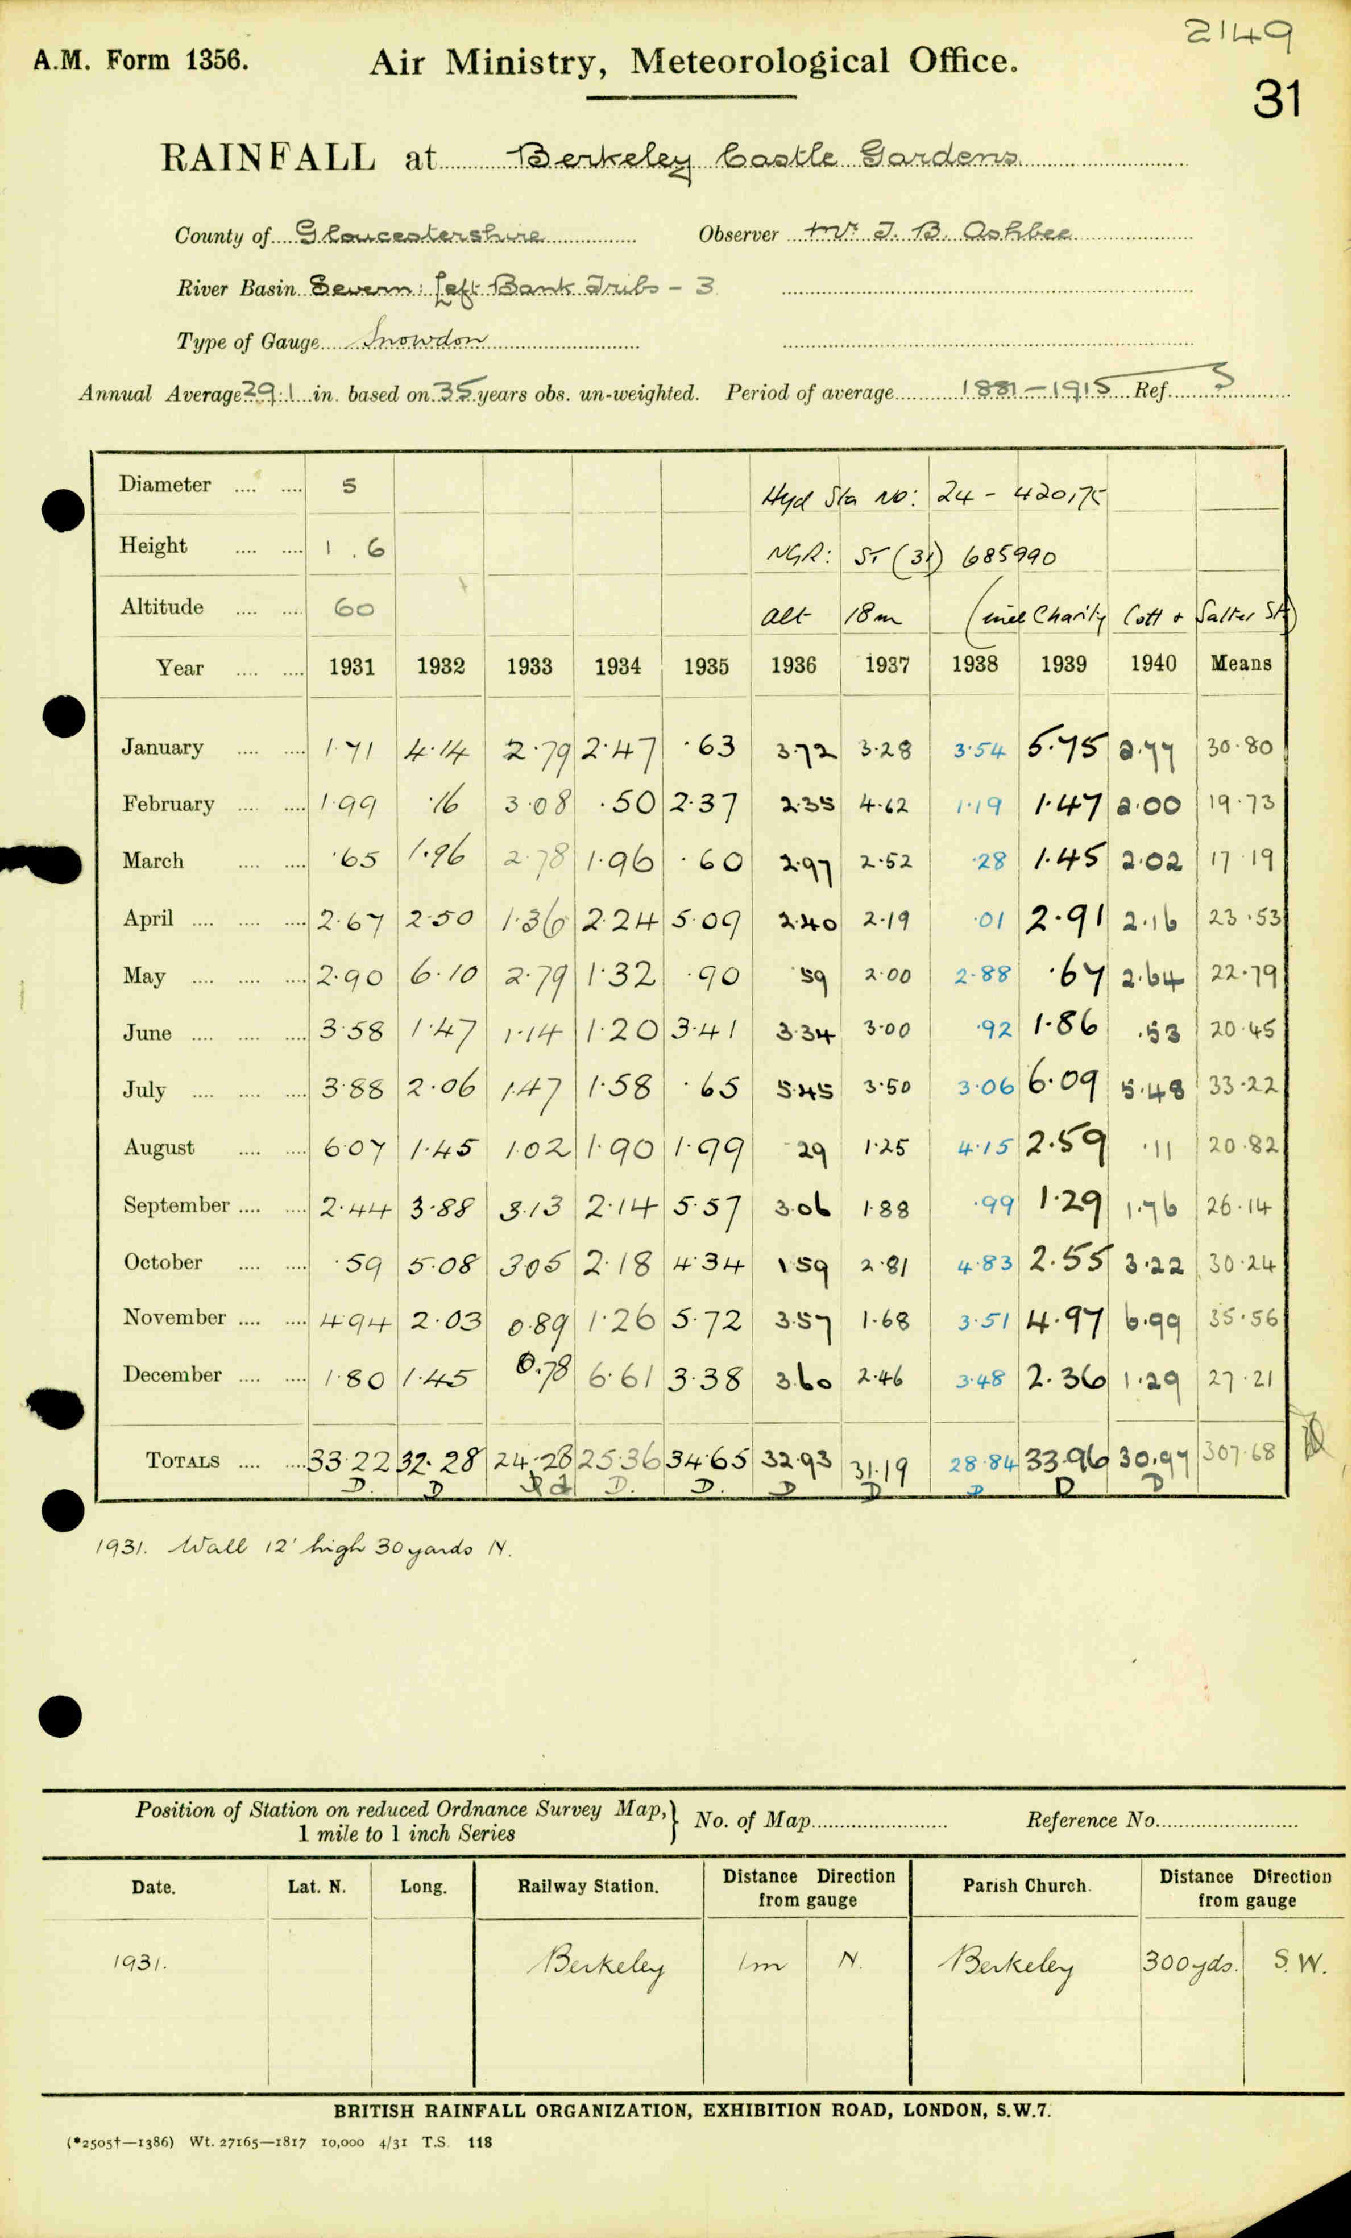 2149
A.M. Form 1356. Air Ministry, Meteorological Office.
31
RAINFALL at Berkeley Castle Gardens
County of Gloucestershire Observer Mr J. B. Ashbee
River Basin Severn: Left Bank Tribs - 3
Type of Gauge Snowdon
Annual Average 29.1 in. based on 35 years obs. un-weighted. Period of average 1881-1915 Ref. S
Diameter 5 Hyd Sta No: 24 - 420175
Height 1.6 NGR: ST (31) 685990
Altitude 60 Alt 18m (incl Charity Cott + Salter St)
Year 1931 1932 1933 1934 1935 1936 1937 1938 1939 1940 Means
January 1.71 4.14 2.79 2.47 .63 3.72 3.28 3.54 5.75 2.77 30.80
February 1.99 .16 3.08 .50 2.37 2.35 4.62 1.19 1.47 2.00 19.73
March .65 1.96 2.78 1.96 .60 2.97 2.52 .28 1.45 2.02 17.19
April 2.67 2.50 1.36 2.24 5.09 2.40 2.19 .01 2.91 2.16 23.53
May 2.90 6.10 2.79 1.32 .90 .59 2.00 2.88 .67 2.64 22.79
June 3.58 1.47 1.14 1.20 3.41 3.34 3.00 .92 1.86 .53 20.45
July 3.88 2.06 1.47 1.58 .65 5.45 3.50 3.06 6.09 5.48 33.22
August 6.07 1.45 1.02 1.90 1.99 .29 1.25 4.15 2.59 .11 20.82
September 2.44 3.88 3.13 2.14 5.57 3.06 1.88 .99 1.29 1.76 26.14
October .59 5.08 3.05 2.18 4.34 1.59 2.81 4.83 2.55 3.22 30.24
November 4.94 2.03 0.89 1.26 5.72 3.57 1.68 3.51 4.97 6.99 35.56
December 1.80 1.45 0.78 6.61 3.38 3.60 2.46 3.48 2.36 1.29 27.21
TOTALS 33.22 32.28 24.28 25.36 34.65 32.93 31.19 28.84 33.96 30.97 307.68
D. D D. D. D D D D D
1931. Wall 12' high 30 yards N.
Position of Station on reduced Ordnance Survey Map, } No. of Map Reference No.
1 mile to 1 inch Series
Date. Lat. N. Long. Railway Station. Distance Direction from gauge Parish Church. Distance Direction from gauge
1931. Berkeley 1m N. Berkeley 300yds. S.W.
BRITISH RAINFALL ORGANIZATION, EXHIBITION ROAD, LONDON, S.W.7.
(*2505†—1386) Wt. 27165—1817 10,000 4/31 T.S. 118